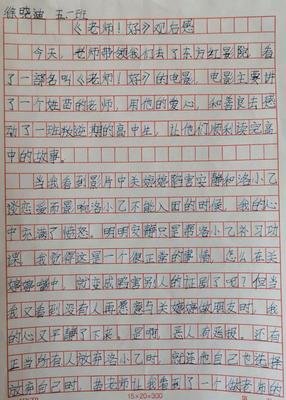 徐晓迪 五二班
《老师!好》观后感
今天,老师带领我们去了东方红影院,看
了一部名叫《老师!好》的电影,电影主要讲
了一个姓苗的老师,用他的爱心,和善良去感
动了一班叛逆期的高中生,让他们顺利读完高
中的故事。
当我看到影片中关婷婷陷害安静和洛小乙
谈恋爱而导致洛小乙不能入团的时候,我的心
中充满了愤怒。明明安静只是帮洛小乙补习功
课,我觉得这是一个很正常的事情,怎么在关
婷婷嘴中,就变成陷害别人的证据了呢?但当
我又看到没有人再愿意与关婷婷做朋友时,我
的心又平静了下来,是啊,恶人有恶报。还有
正当所有人放弃洛小乙时,就连他自己也选择
放弃自己时,苗老师让我看到了一个做老师的
15×20=300